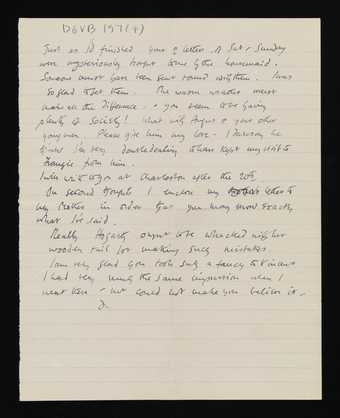 DGVB 197(4)
Just as I'd finished your 2 letters of Sat & Sunday
were mysteriously brought home by the housemaid.
Someone must have been sent round with them. I was
so glad to get them. The warm weather must
make all the difference - & you seem to be having
plenty of Society! what with Angus & your other
young men. Please give him my love -
thinks I'm very double dealing to have kept my visit to
from him.
I will write to you at Charleston after the 20th
On second thoughts I enclose my letter to
my Mother in order that you may know exactly
what I've said.
Really Hogarth ought to be whacked with her
wooden rail for making such mistakes.
I am very glad you took such a fancy to
I had very much the same impression when I
went there - but could not make you believe it.